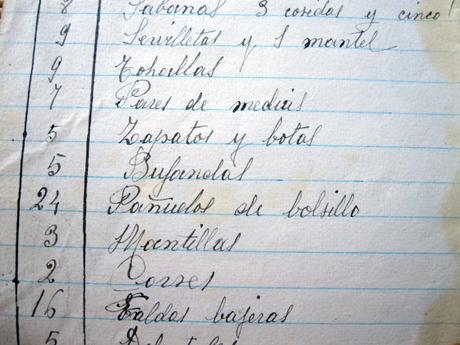 8 Sabanas 3 cosidas y cinco
9 Servilletas y 1 mantel
9 Tohallas
7 Pares de medias
5 Zapatos y botas
5 Bufandas
24 Pañuelos de bolsillo
3 Mantillas
2
16 Faldas bajeras
5